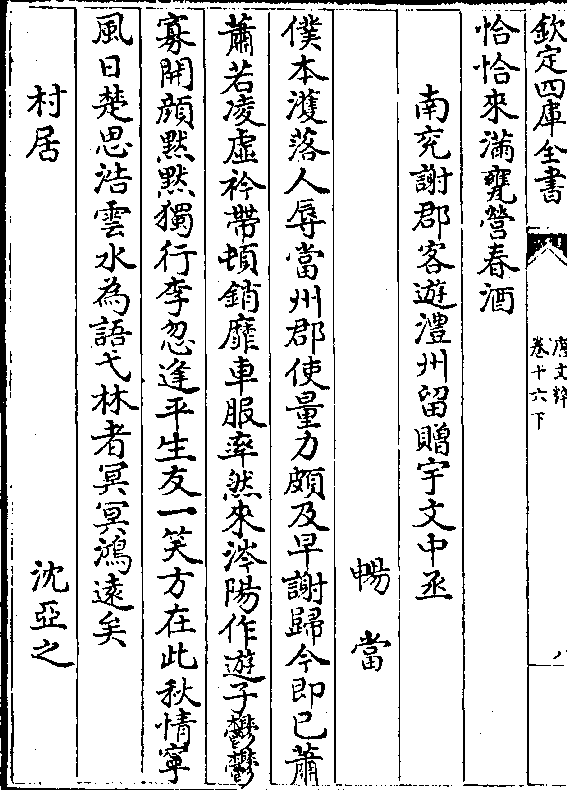 欽定四庫全書
唐文粹
卷十六下
八
恰恰來滿甕營春酒
南兖謝郡客遊澧州留贈宇文中丞
暢當
僕本濩落人辱當州郡使量力頗及早謝歸今即已蕭
蕭若凌虛衿帶頓銷靡車服率然來涔陽作遊子鬱鬱
寡開顔黙黙獨行李忽逢平生友一笑方在此秋情寧
風日楚思浩雲水為語弋林者冥冥鴻遠矣
村居
沈亞之